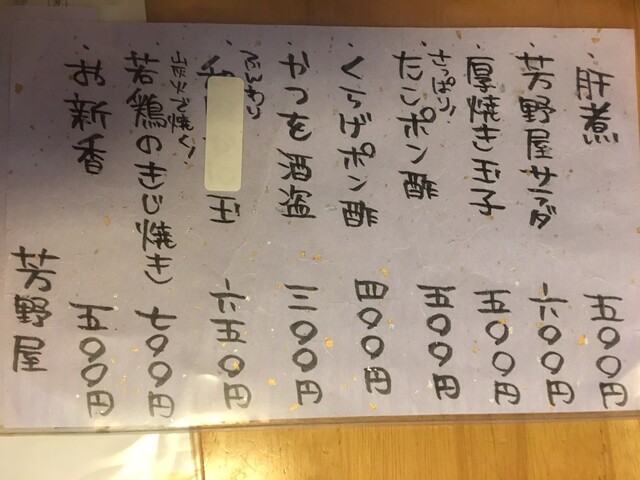 肝煮 五〇〇円
・芳野屋サラダ 六〇〇円
・厚焼き玉子 五〇〇円
さっぱり!
・たこポン酢 五〇〇円
・くらげポン酢 四〇〇円
・かつを酒盗 三〇〇円
玉 六五〇円
炭火で焼く!
・若鶏のきじ焼き 七〇〇円
・お新香 五〇〇円
芳野屋